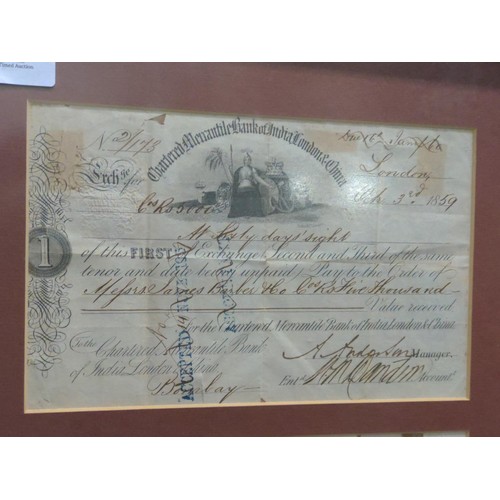 Timed Auction
No 2/178
Chartered Mercantile Bank of India, London & China
Due 6th Jany/60
Exchge for
London
Cos Rs 5000
3rd 1859
1
At Sixty days' sight
of this FIRST of Exchange Second and Third of the same
tenor and date being unpaid Pay to the Order of
Messrs James Barber & Co Cos Rs Five Thousand
Value received
For the Chartered Mercantile Bank of India, London & China.
To the
Chartered Mercantile Bank
A. Anderson Manager.
of India, London & China
Entd Accountt
Bombay
ACCEPTED